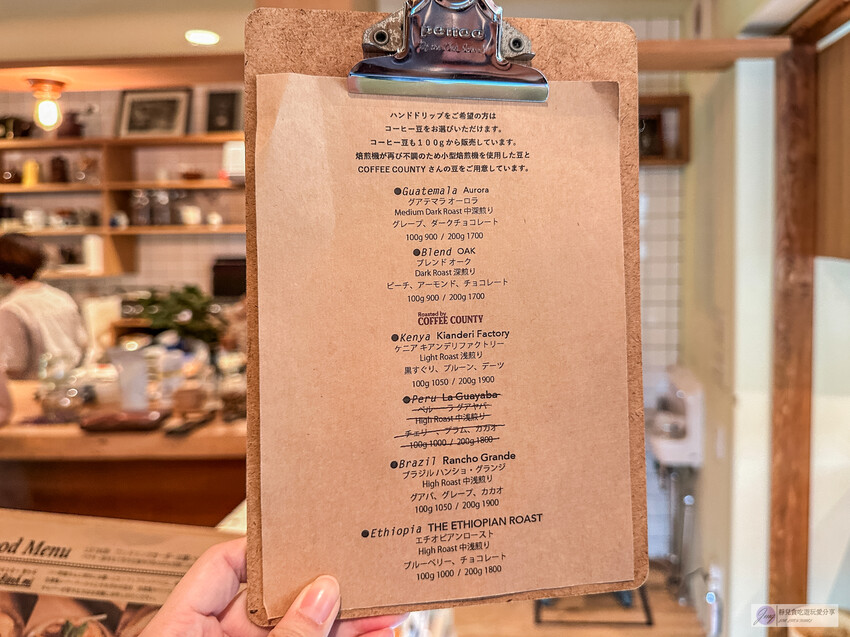 ハンドドリップをご希望の方は
コーヒー豆をお選びいただけます。
コーヒー豆も100gから販売しています。
焙煎機が再び不調のため小型焙煎機を使用した豆と
COFFEE COUNTY さんの豆をご用意しています。
●Guatemala Aurora
グアテマラ オーロラ
Medium Dark Roast 中深煎り
グレープ、ダークチョコレート
100g 900 / 200g 1700
●Blend OAK
ブレンド オーク
Dark Roast 深煎り
ピーチ、アーモンド、チョコレート
100g 900 / 200g 1700
Roasted by
COFFEE COUNTY
●Kenya Kianderi Factory
ケニア キアンデリファクトリー
Light Roast 浅煎り
黒すぐり、プルーン、デーツ
100g 1050 / 200g 1900
●Peru La Guayaba
ペルー ラ グアヤバ
High Roast 中浅煎り
チェリー、プラム、カカオ
100g 1000 / 200g 1800
●Brazil Rancho Grande
ブラジル ハンショ・グランジ
High Roast 中浅煎り
グアバ、グレープ、カカオ
100g 1050 / 200g 1900
●Ethiopia THE ETHIOPIAN ROAST
エチオピアンロースト
High Roast 中浅煎り
ブルーベリー、チョコレート
100g 1000 / 200g 1800
od Menu